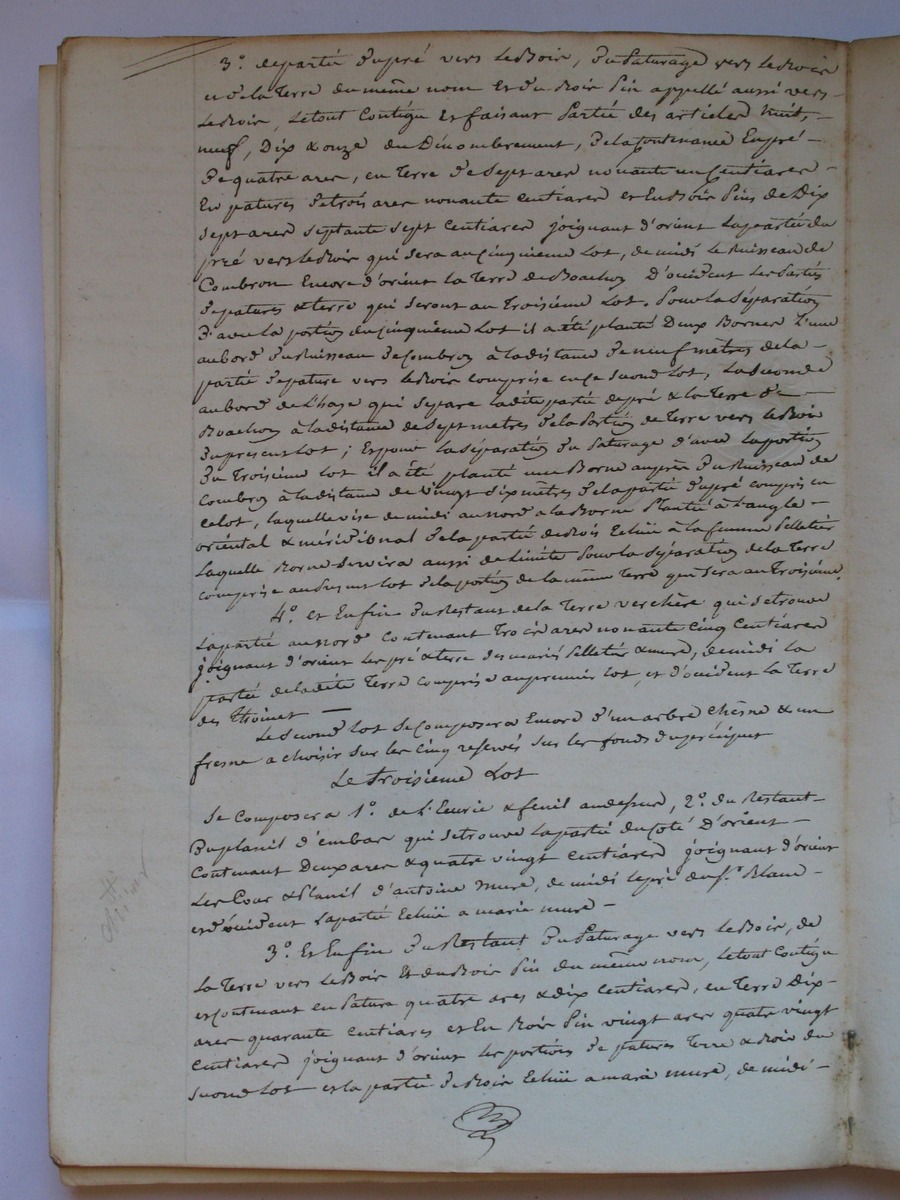 3.° de partie du pré vers le Bois, du Paturage vers le Bois
et de la Terre du même nom et du Bois Pin appellé aussi vers-
le Bois, le tout Contigu et faisant Partie des articles huit,
neuf, Dix & onze du Dénombrement, de la Contenance En pré-
De quatre ares, en Terre de Sept ares nonante un Centiares-
En patures de trois ares nonante Centiares et en Bois Pins de Dix
sept ares septante sept Centiares joignant d'orient la partie du
pré vers le Bois qui sera au Cinquième Lot, de midi le Ruisseau de
Combron Encore d'orient la Terre de Boachon D'occident les Parties
de patures & terre qui seront au Troisième Lot. Pour la Séparation
D'avec la portion du Cinquième Lot il a été planté Deux Bornes L'une
au bord du Ruisseau de Combron à la distance de neuf mètres de la-
partie de pature vers le Bois comprise en ce second Lot, La seconde
au bord de L'haye qui separe la dite partie de pré & la Terre de-
Boachon à la distance de Sept metres de la Portion de Terre vers le Bois
du present Lot ; Et pour la Séparation du Paturage d'avec la portion
Du Troisième Lot il a été planté une Borne auprès du Ruisseau de
Combron à la distance de vingt six mètres de la partie du pré compris en
ce Lot, laquelle vise de midi au nord a la Borne Plantée à L'angle-
oriental & méridional de la partie de Bois Echüe à la femme Pelletier
Laquelle Borne Servira aussi de Limite Pour la Séparation de la Terre
comprise au present Lot de la portion de la même Terre qui sera au Troisième.
4.° Et Enfin du Restant de la Terre verchère qui se trouve
La partie au nord Contenant Trois ares nonante Cinq Centiares
joignant d'orient les pré & terre des mariés Pelletier & mure, de midi la
partie de la dite Terre comprise au premier Lot, et d'occident la Terre
des Thoinet —
Le second Lot Se Composera Encore d'un arbre Chêsne & un
fresne a choisir sur les Cinq reservés sur les fonds du préciput
Le Troisieme Lot
Se Composera 1.° de L'Ecurie & fenil au dessus, 2.° du Restant-
Du planil d'embas qui se trouve La partie du Coté D'orient-
Contenant Deux ares & quatre vingt Centiares joignant d'orient
Les Cour & Planil d'antoine Mure, de midi le pré du S.r Blanc-
et d'occident La partie Echüe a marie mure-
3.° Et Enfin du Restant Du Paturage vers le Bois, de
La Terre vers le Bois Et du Bois Pin du même nom, Le tout Contigu
et Contenant en Pature quatre ares & dix Centiares, en Terre Dix-
ares quarante Centiares et En Bois Pin vingt ares quatre vingt
Centiares joignant d'orient les portions de patures Terre & Bois du
second Lot et la partie de Bois Echüe a marie mure, de midi-